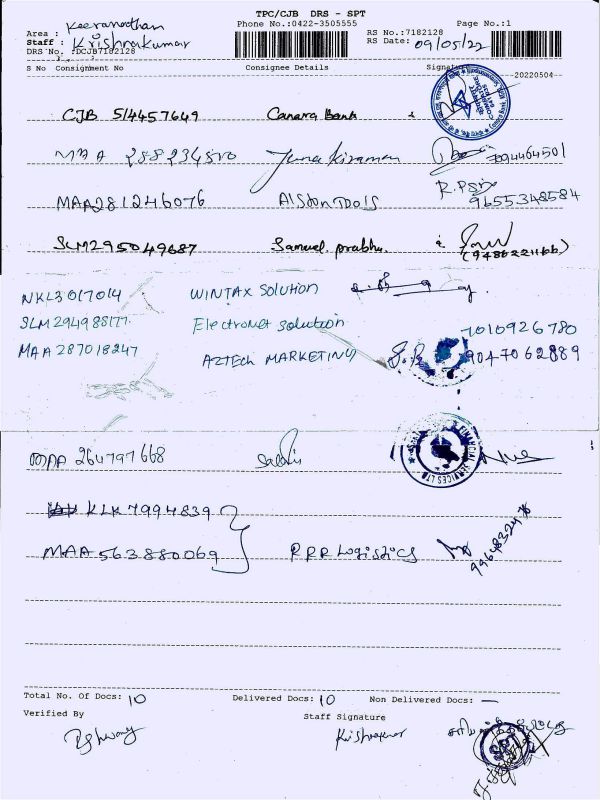 TPC/CJB DRS - SPT
Area : Keeranatham Phone No.:0422-3505555 Page No.:1
Staff : Krishnakumar RS No.:7182128
DRS No. :DCJB7182128 RS Date: 09/05/22
S No Consignment No Consignee Details Signature
20220504
CJB 514457649 Canara Bank
MAA 288234500 7094464501
MAA281246076 Alston Tools R.P 9655348584
SLM295049687 Samuel. prabhu.
NKL3017014 WINTAX Solution
SLM294988177 Electronet solution 7010926780
MAA 287018247 AZTEch MARKETING 9047062889
MAA 264797668 FINANCIAL SERVICES LTD
KLK7994839
MAA 563880069 RRR Logistics
Total No. Of Docs: 10 Delivered Docs: 10 Non Delivered Docs: —
Verified By Staff Signature
Krishnakumar
SPT